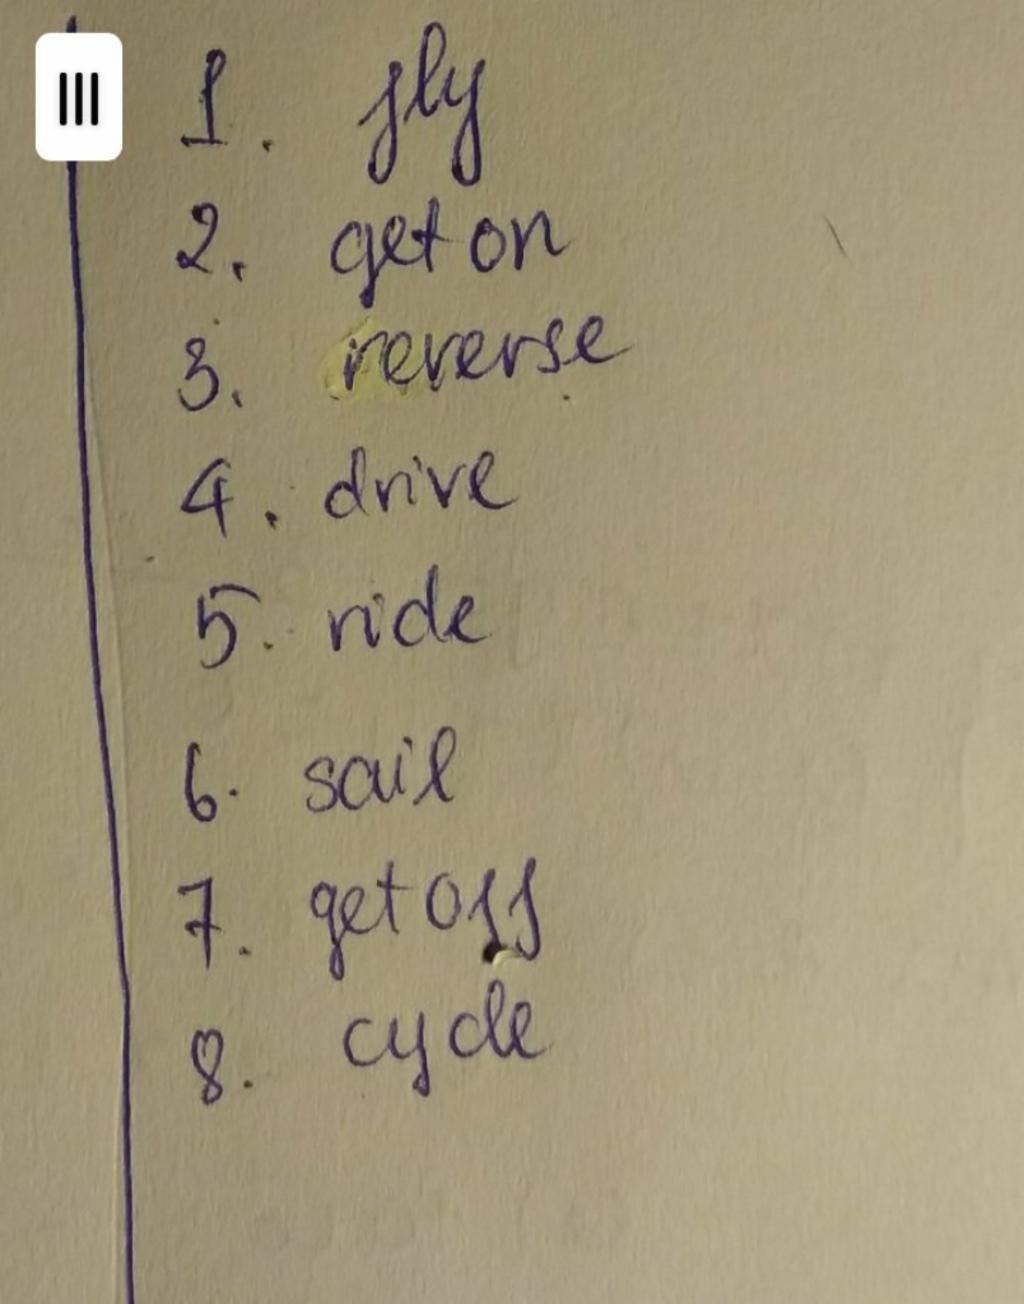 III
1. fly
2. get on
3. reverse
4. drive
5. ride
6. sail
7. get off
8. cycle